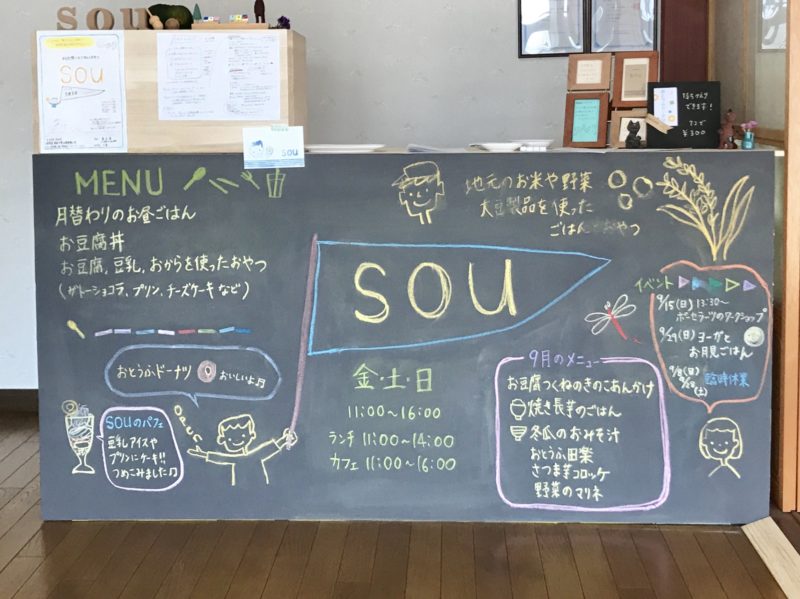 sou
sou
sou
できます!
¥300
MENU
月替わりのお昼ごはん
お豆腐丼
お豆腐、豆乳、おからを使ったおやつ
(ガトーショコラ、プリン、チーズケーキ など)
おとうふドーナツ おいしいよ♪
SOUのパフェ
豆乳アイスや
プリンにケーキ!!
つめこみました♫
地元のお米や野菜
大豆製品を使った
ごはんとおやつ
SOU
金・土・日
11:00~16:00
ランチ 11:00~14:00
カフェ 11:00~16:00
9月のメニュー
お豆腐つくねのきのこあんかけ
焼き長芋のごはん
冬瓜のおみそ汁
おとうふ田楽
さつま芋コロッケ
野菜のマリネ
イベント
9/15(日) 13:30~
ポーセラーツのワークショップ
9/29(日) ヨーガと
お月見ごはん
臨時休業